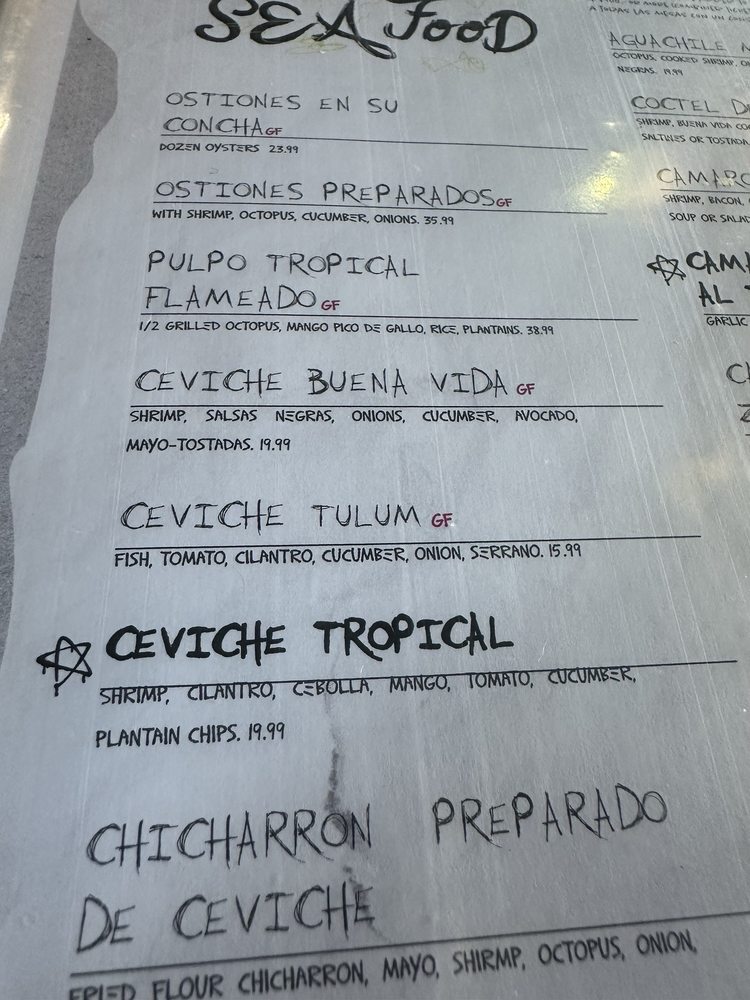 SEA FOOD
OSTIONES EN SU
CONCHA GF
DOZEN OYSTERS 23.99
OSTIONES PREPARADOS GF
WITH SHRIMP, OCTOPUS, CUCUMBER, ONIONS. 35.99
PULPO TROPICAL
FLAMEADO GF
1/2 GRILLED OCTOPUS, MANGO PICO DE GALLO, RICE, PLANTAINS. 38.99
CEVICHE BUENA VIDA GF
SHRIMP, SALSAS NEGRAS, ONIONS, CUCUMBER, AVOCADO,
MAYO-TOSTADAS. 19.99
CEVICHE TULUM GF
FISH, TOMATO, CILANTRO, CUCUMBER, ONION, SERRANO. 15.99
CEVICHE TROPICAL
SHRIMP, CILANTRO, CEBOLLA, MANGO, TOMATO, CUCUMBER,
PLANTAIN CHIPS. 19.99
CHICHARRON PREPARADO
DE CEVICHE
FRIED FLOUR CHICHARRON, MAYO, SHIRMP, OCTOPUS, ONION,
AGUACHILE
OCTOPUS, COOKED SHRIMP,
NEGRAS. 19.99
COCTEL
SHRIMP, BUENA VIDA
SALTINES OR TOSTADA
SHRIMP, BACON,
SOUP OR
AL
GARLIC